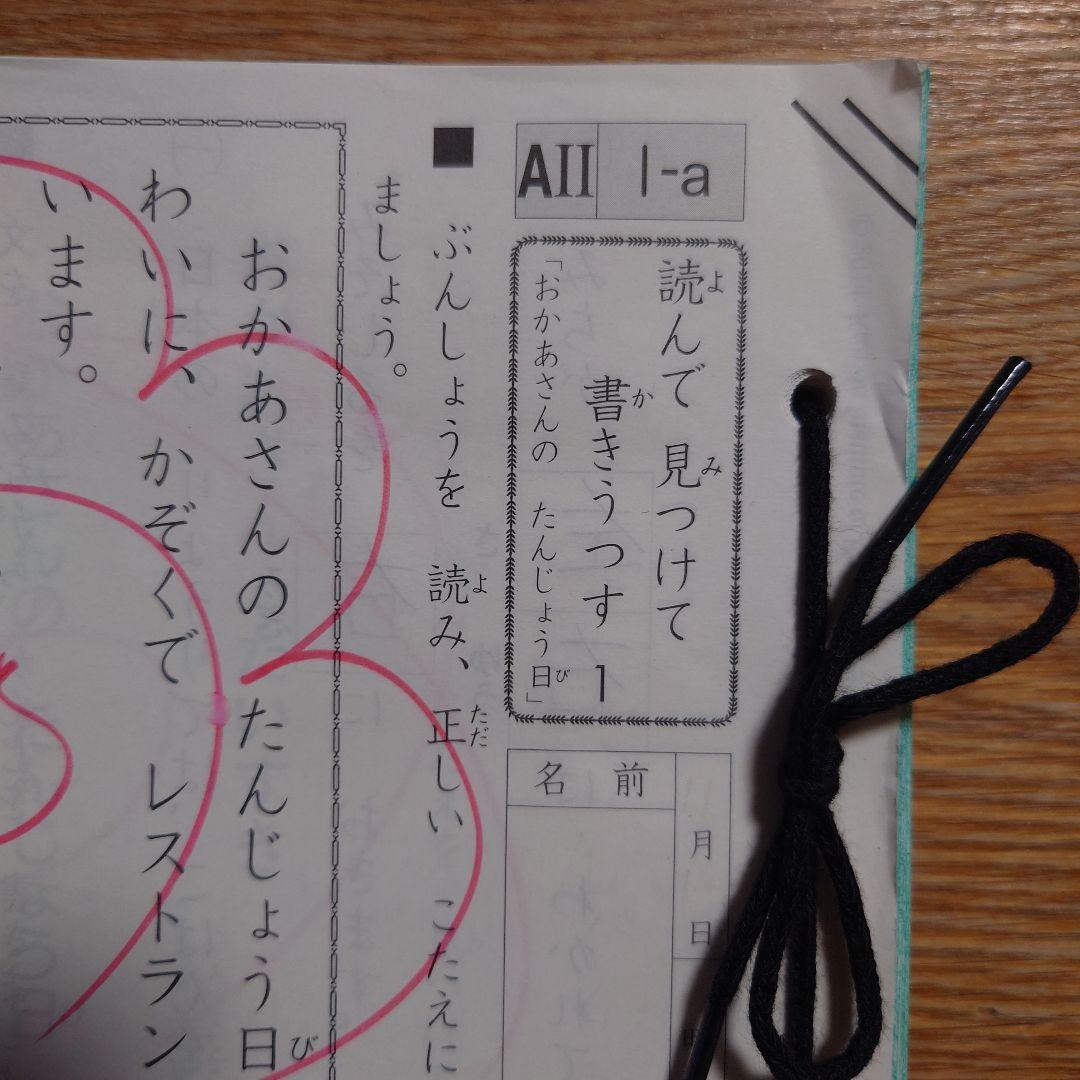 AII 1-a
読んで 見つけて
書きうつす 1
「おかあさんの たんじょう日」
名前
月
日
■ ぶんしょうを 読み、正しい こたえに
ましょう。
おかあさんの たんじょう日
わいに、かぞくで レストラン
います。